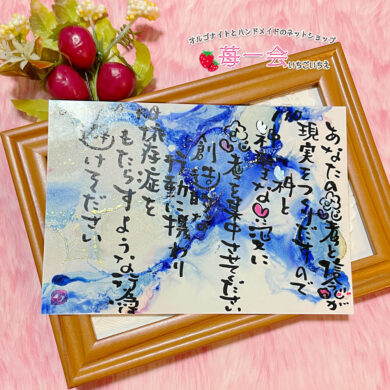 オルゴナイトとハンドメイドのネットショップ
苺一会
いちごいちえ
あなたの思考と信念が
現実をつくりだすので
思考を集中させてください
創造的な
行動に携わり
依存症を
もたらすような
避けてください